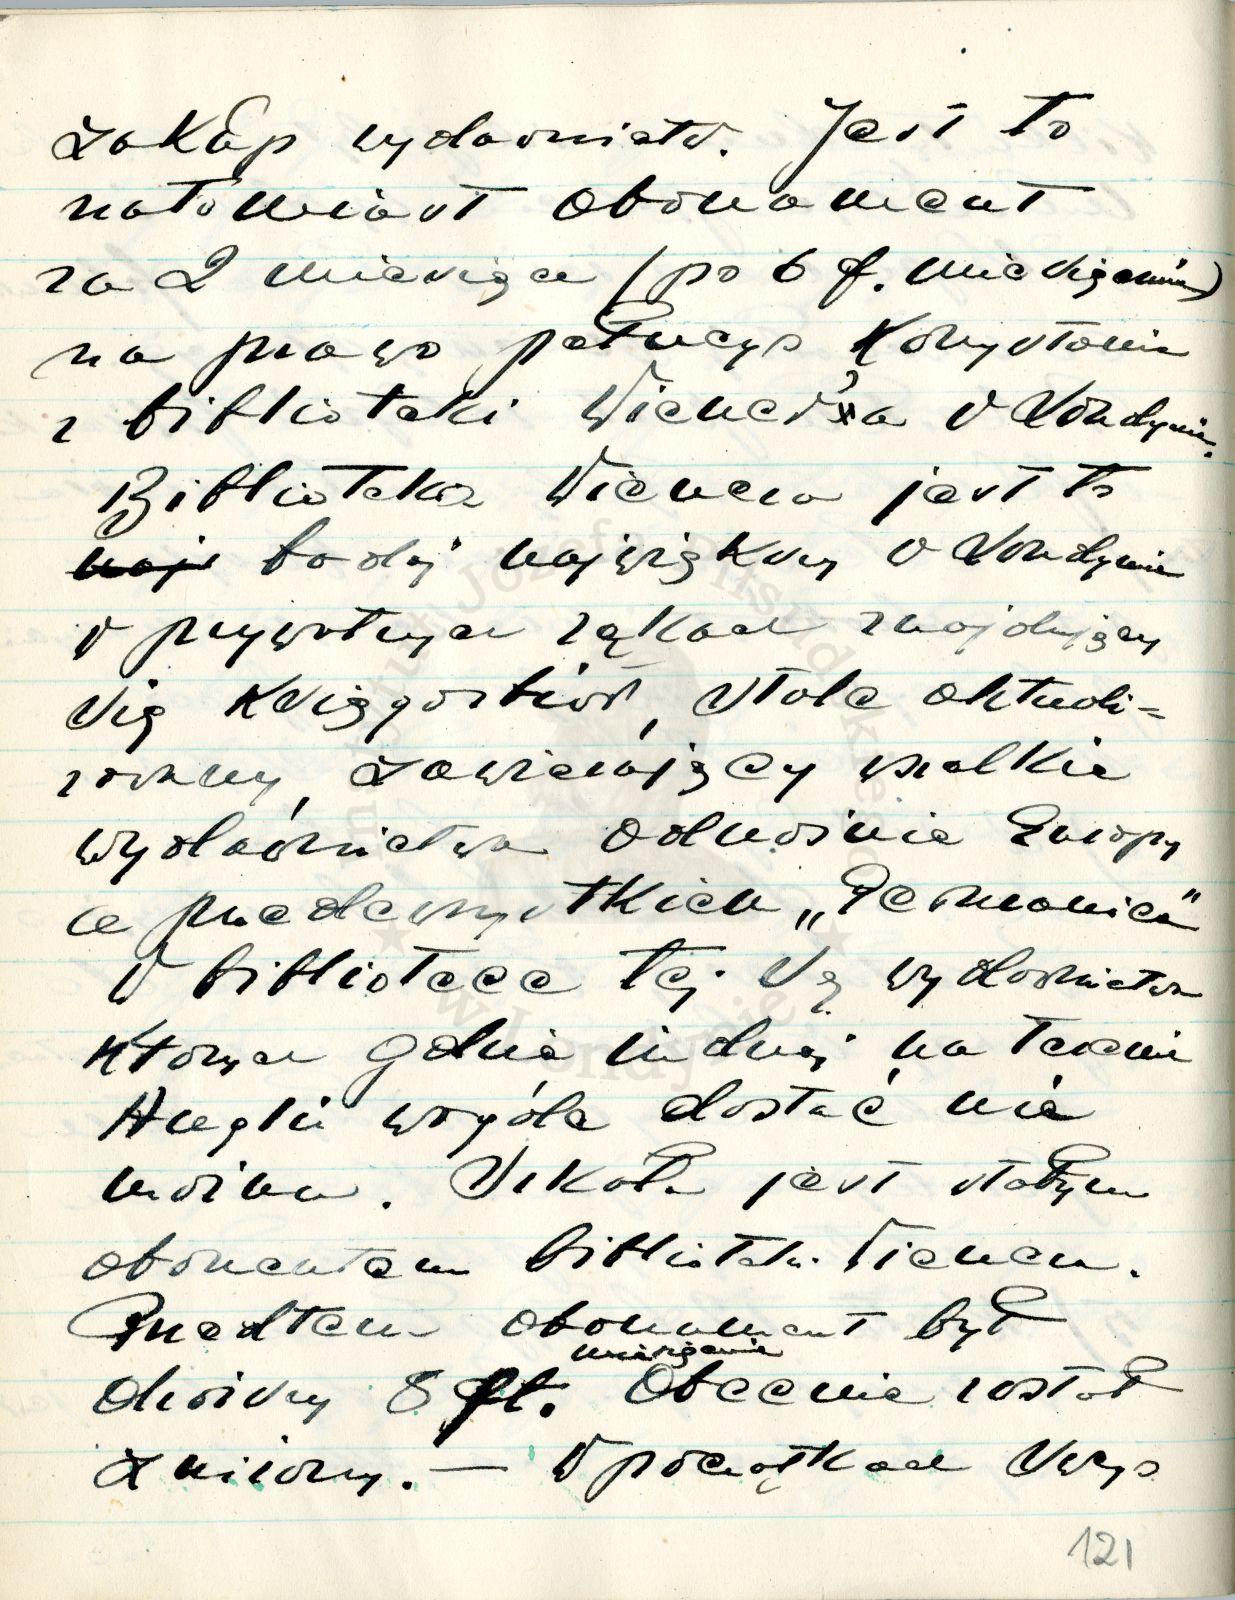 zakup wydawnictw. Jest to
natomiast abonament
za 2 miesiące (po 6 f. miesięcznie)
na prawo pełnego korzystania
z biblioteki Wienera w Londynie.
Biblioteka Wienera jest to
naj bodaj największy w Londynie
w prywatnych rękach znajdujący
się księgozbiór, stale aktuali=
zowany, zawierający wszelkie
wydawnictwa odnośnie Europy
a przedewszystkiem „Germanica"
W bibliotece tej są wydawnictwa
których gdzie indziej na terenie
Anglii wogóle dostać nie
można. Szkoła jest stałym
abonentem biblioteki Wienera.
Przedtem abonament był
miesięcznie
droższy 8 ft. Obecnie został
zniżony. — W początkach swego
121
Instytut Józefa Piłsudskiego
w Londynie